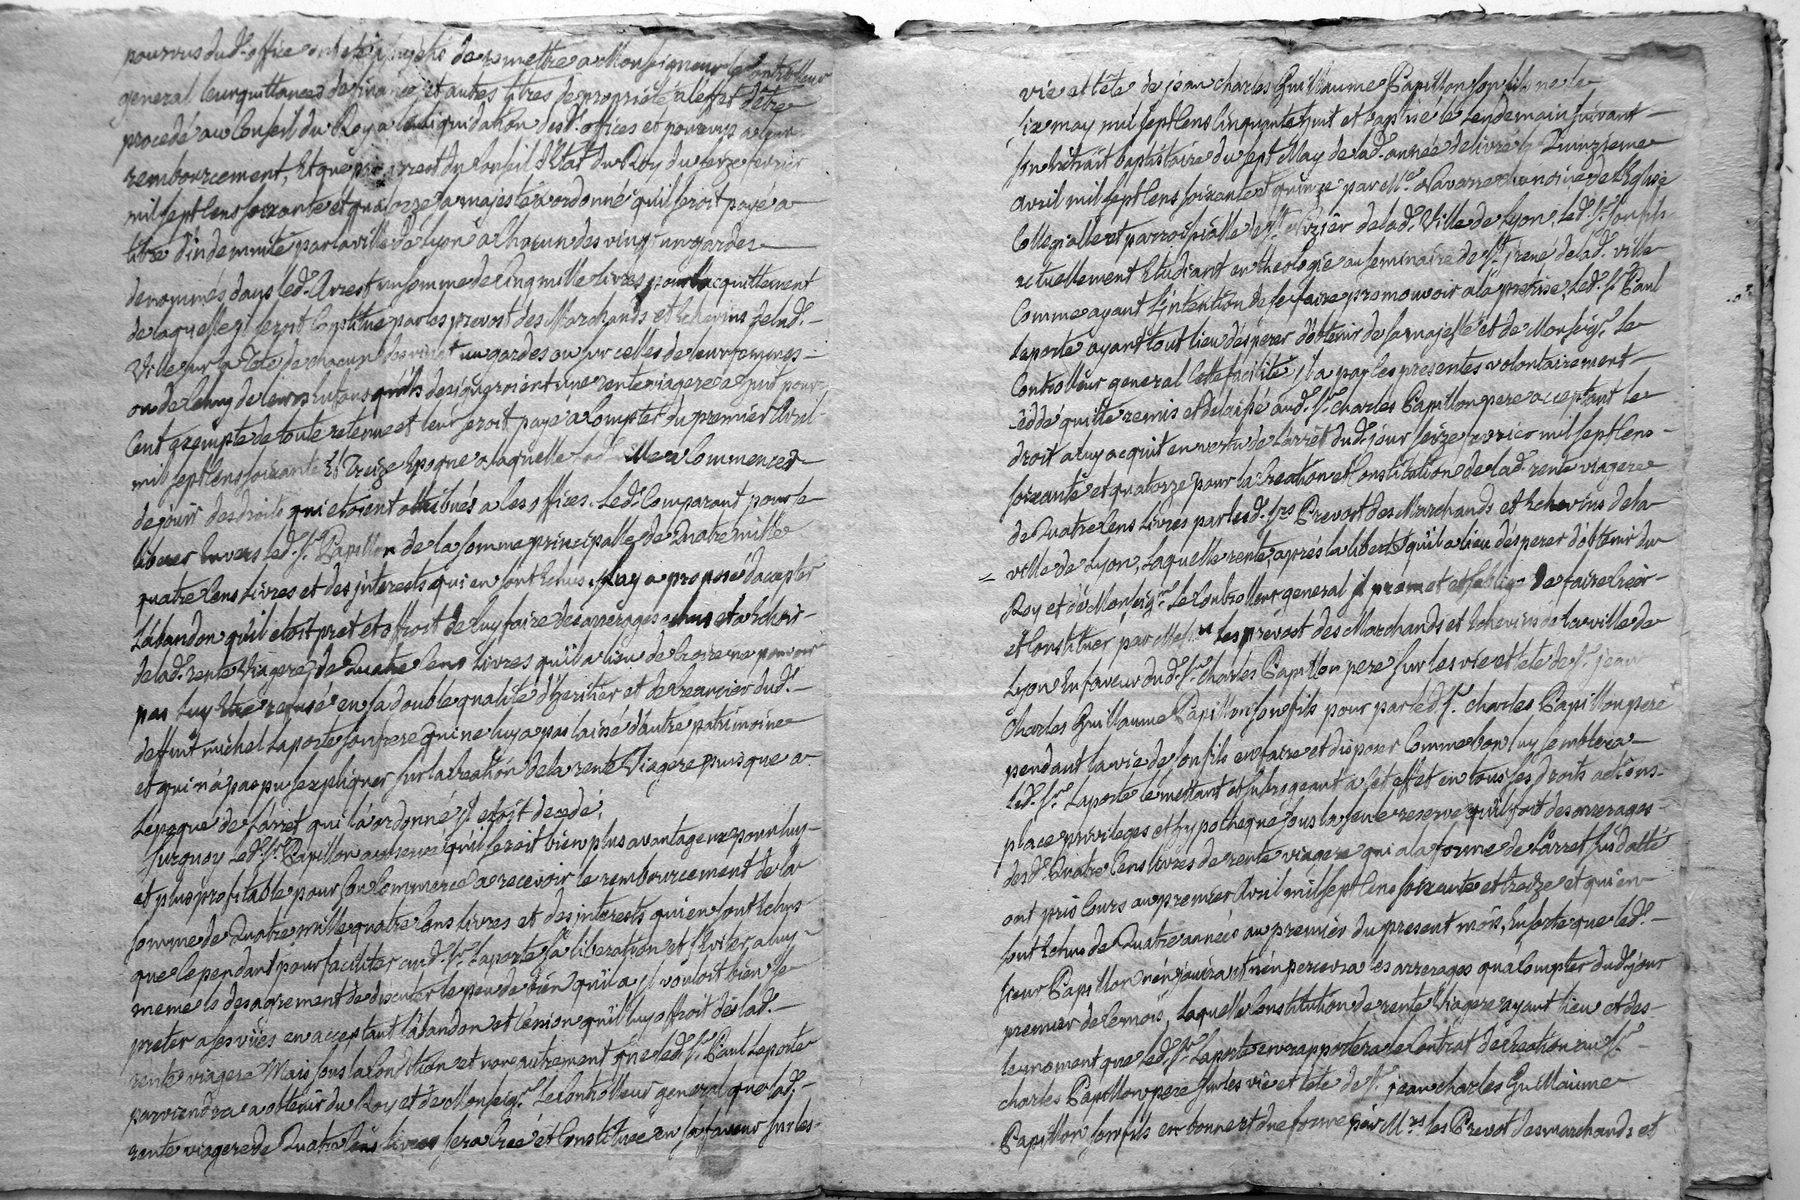 pourvus dud. office ont eté obligés de remettre a Monseigneur le Controlleur
general leurs quittances de finance et autres titres de propriété a leffet d'être
procedé au Conseil du Roy a la liquidation desd. offices et pourvus a leur
rembourcement, Et que par arrest du Conseil d'Etat du Roy du seize fevrier
mil sept Cens soixante et quatorze sa majesté a ordonné qu'il seroit payé a
titre d'indemnité par la ville de Lyon a Chacun des vingt un gardes
denommés dans led. Arrest un somme de Cinq mille livres pour l'acquittement
de laquelle il seroit Constitué par les prevost des Marchands et Echevins de lad.
Ville sur la Tete de chacun des vingt un gardes ou sur celles de leurs femmes
ou de celuy de leurs Enfans qu'ils designeroient une rente viagere a huit pour
Cent exempte de toute retenue et leur seroit payé a Compter du premier Avril
mil sept Cens soixante Et Treize Epoque a laquelle lad. Ville a Commencer
de jouir des droits qui etoient attribués a ces offices. Led. Comparant pour se
liberer Envers led. Sr. Papillon de la somme principalle de Quatre mille
quatre Cens Livres et des interests qui en sont Echus. Luy a proposé d'accepter
L'abandon qu'il etoit pret et offroit de luy faire des arrerages echus et a echeoir
de lad. rente Viagere de Quatre Cens Livres qu'il a lieu de croire ne pouvoir
pas luy Etre refusé en sa double qualité d'Heritier et de Creancier dud.
deffunt michel Laporte son frere qui ne luy a pas laissé d'autre patrimoine
et qui n'a pas pu s'expliquer sur la creation de la rente Viagere puis que a
Lepoque de Larret qui l'a ordonné il etoit decedé;
Surquoy Led. Sr. Papillon a observé qu'il seroit bien plus avantageux pour luy
et plus profitable pour son Commerce de recevoir le rembourcement de la
somme de Quatre mille quatre Cens livres et des interests qui en sont Echus
que Cependant pour faciliter aud. Sr. Laporte sa liberation et Eviter a luy
meme le desagrement de discuter le peu de bien qu'il a il vouloit bien se
preter a ses vües en acceptant L'abandon et Cession qu'il luy offroit de lad.
rente viagere Mais sous la Condition et non autrement que led. Sr. Paul Laporte
parviendra a obtenir du Roy et de Monseigr. Le Controlleur general que lad.
rente viagere de Quatre Cens livres sera Creé et Constituée en sa faveur sur les
vie et tête de jean charles Guillaume Papillon son fils né le
six may mil sept Cens Cinquante huit et baptisé le Lendemain suivant
son Extrait baptistaire du sept May de lad. année delivré le Quinzieme
avril mil sept Cens soixante et quinze par Mre. Navarre chanoine de l'Eglise
Collegialle et parroissialle de St. Nizier de lad. Ville de Lyon, led. Sr. son fils
actuellement Etudiant en theologie au seminaire de St. irené de lad. ville
Comme ayant L'intention de se faire promouvoir a la pretrise, Led. Sr. Paul
Laporte ayant tout lieu d'esperer d'obtenir de sa majesté et de Monseigr. Le
Controlleur general Cette facilité, il a par les presentes volontairement
Cédé quitté remis et delaissé aud. Sr. Charles Papillon pere acceptant le
droit a luy acquit en vertu de Larrêt dud. jour seize fevrier mil sept Cens
soixante et quatorze pour la Creation et Constitution de lad. rente viagere
de Quatre Cens Livres par lesd. Srs Prevost des Marchands et Echevins de la
ville de Lyon, Laquelle rente, aprés la liberté qu'il a lieu d'esperer d'obtenir du
Roy et de Monseigr. Le Controlleur general il promet et s'oblige de faire Creér
et Constituer par Messrs. Les prevost des Marchands et Echevins de la ville de
Lyon En faveur dud. Sr. Charles Papillon pere sur les vie et tete de Sr. jean
Charles Guillaume Papillon son fils pour par led. Sr. charles Papillon pere
pendant la vie de son fils en faire et disposer Comme bon luy semblera
Led. Sr. Laporte le mettant et subrogeant a Cet effet en tous ses droits actions
place privileges et hypotheque sous la seule reserve qu'il fait des arrerages
desd. Quatre Cens livres de rente viagere qui a la forme de Larret susdatté
ont pris Cours au premier Avril mil sept Cens soixante et treize et qui en
sont Echus de Quatre années au premier du present mois, En sorte que led.
sieur Papillon n'en jouira et n'en percevra les arrerages qu'a Compter dud. jour
premier de Ce mois, Laquelle Constitution de rente Viagere ayant lieu et des
le moment que led. Sr. Laporte en rapportera le Contrat de Creation au Sr.
charles Papillon pere sur les vie et tete de Sr. jean charles Guillaume
Papillon son fils en bonne et due forme par Mrs les Prevot des marchands et